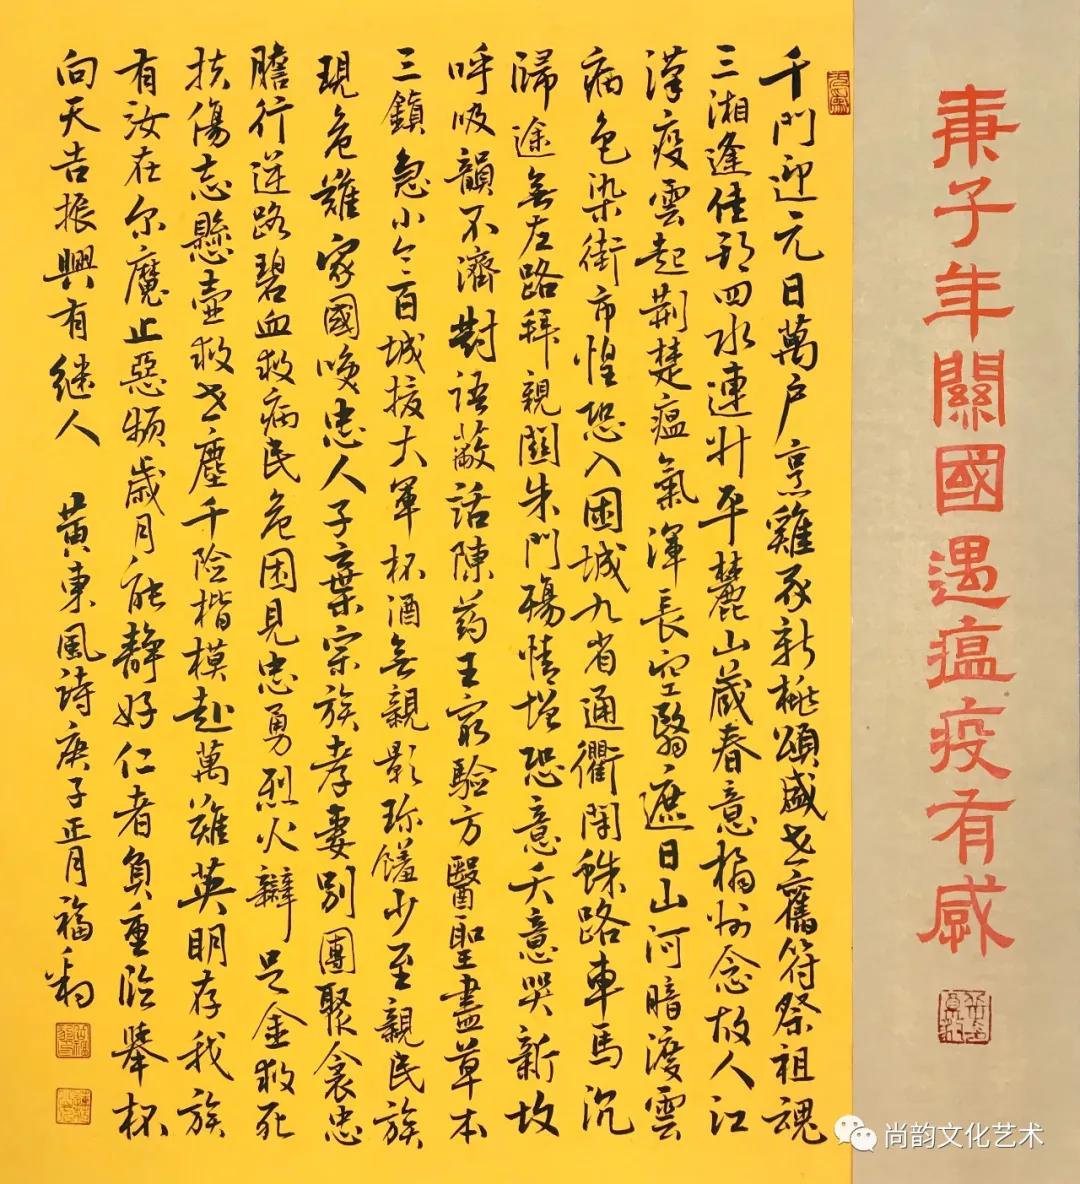 庚子年關國遇瘟疫有感
千門迎元日萬户烹雞豕新桃頌盛世舊符祭祖魂
三湘逢佳節四水連汁平麓山藏春意橘州念故人江
漢疫雲起荆楚瘟氣渾長空翳遮日山河暗渡雲
病色染街市惶恐入困城九省通衢閉蛛路車馬沉
歸途無左路拜親闔朱門殤情增恐意天意哭新坟
呼吸韻不濟對語蔽話陳药王窮驗方醫聖盡草本
三鎮急小令百城援大軍杯酒無親影珍饈少至親民族
現危難家國唤忠人子棄宗族孝妻别團聚衾忠
膽行逆路碧血救病民危困見忠勇烈火辨足金救死
扶傷志懸壺救世塵千险楷模赴萬難英明存我族
有汝在尔魔止惡頻歲月能静好仁者負重险舉杯
向天告振興有继人 黄東風詩庚子正月福
尚韵文化艺术